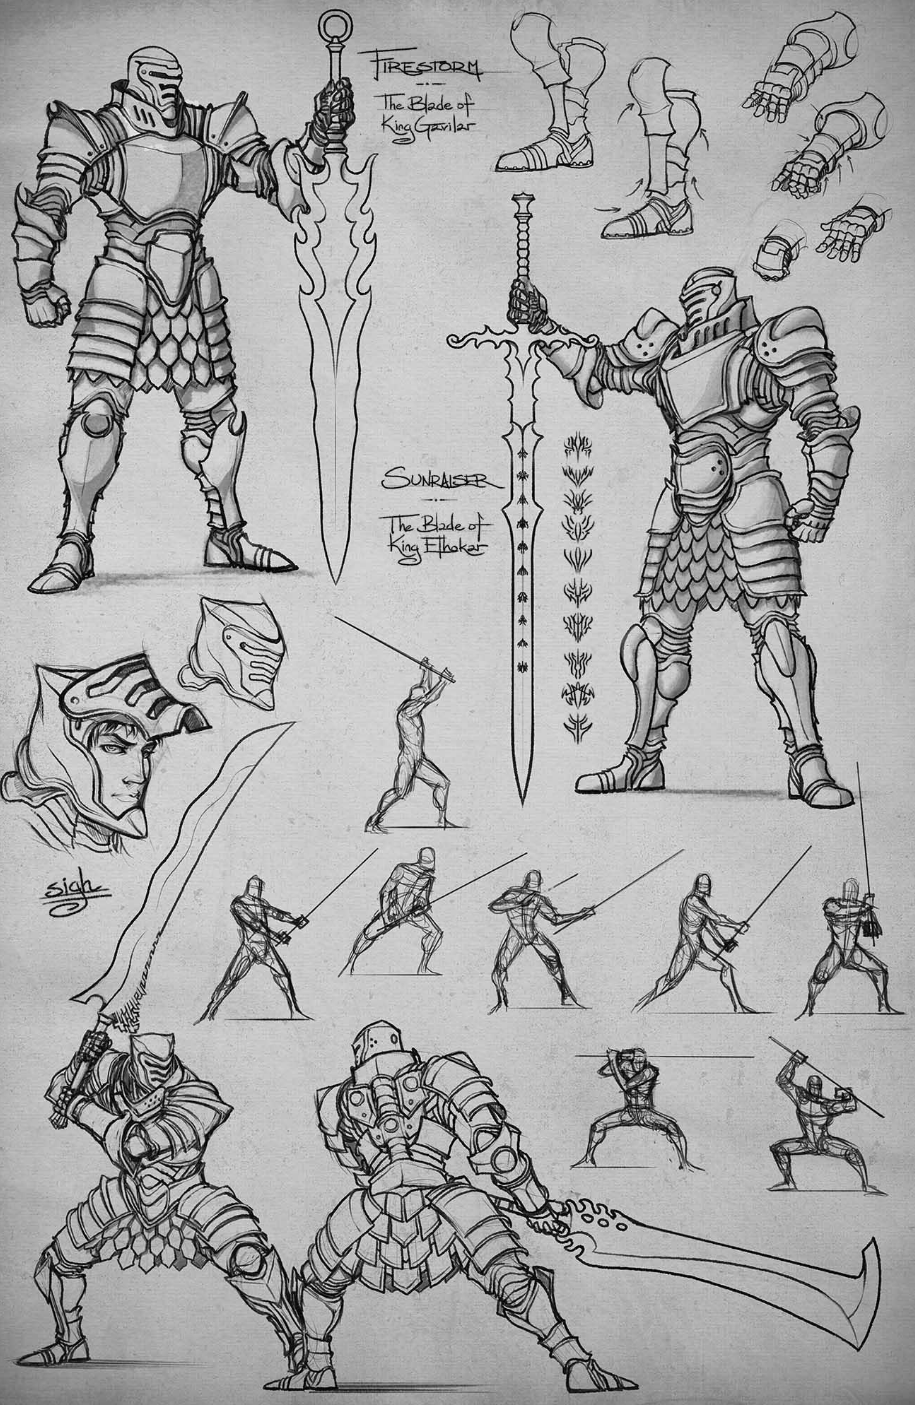 FIRESTORM
The Blade of
King Gavilar
SUNRAISER
The Blade of
King Elhokar
sigh